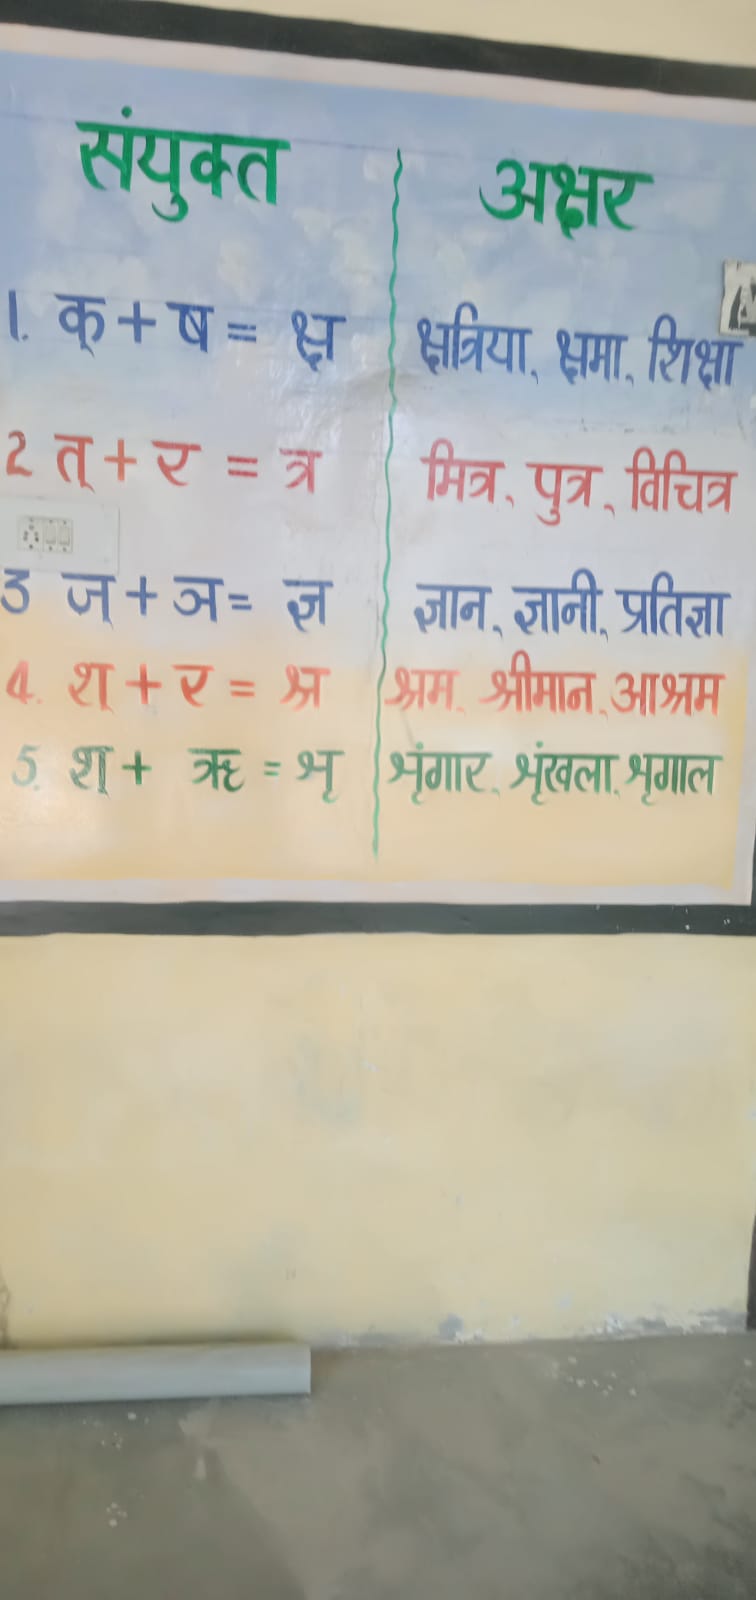 संयुक्त अक्षर
1. क् + ष = क्ष क्षत्रिया, क्षमा, शिक्षा
2 त् + र = त्र मित्र, पुत्र, विचित्र
3 ज् + ञ = ज्ञ ज्ञान, ज्ञानी, प्रतिज्ञा
4. श् + र = श्र श्रम, श्रीमान, आश्रम
5. श् + ऋ = शृ शृंगार, शृंखला, शृगाल